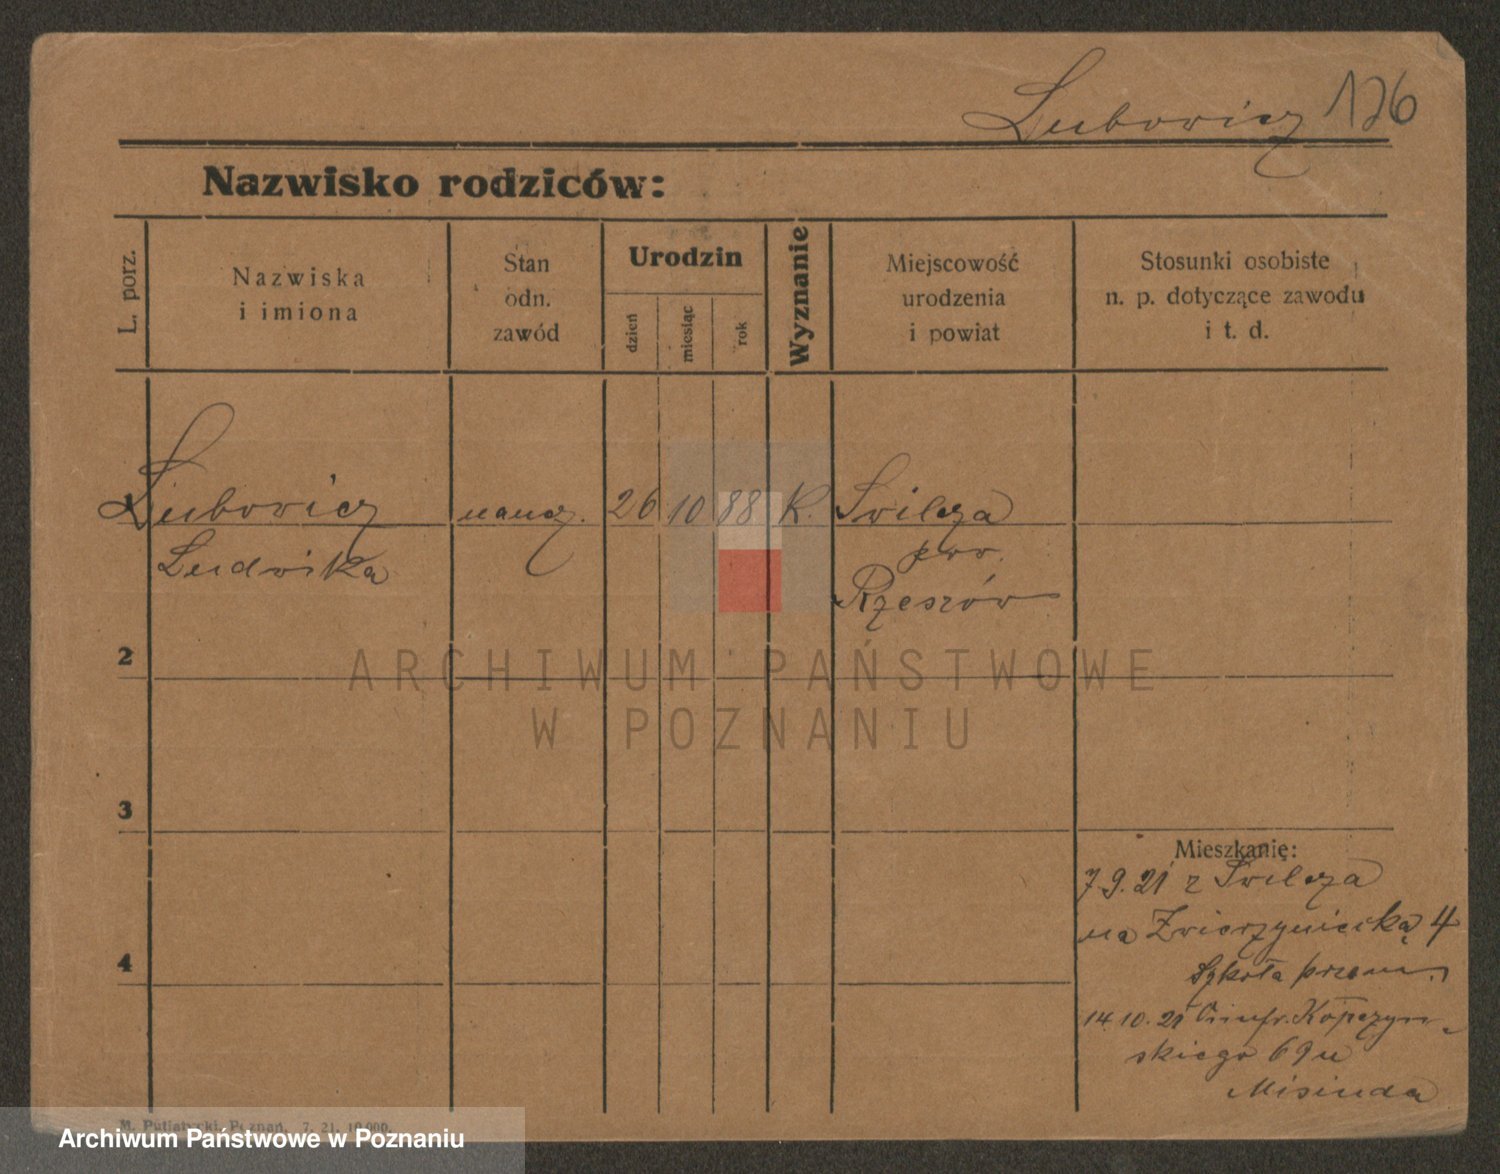 Lubowicz 126
Nazwisko rodziców:
L. porz.
Nazwiska
i imiona
Stan
odn.
zawód
Urodzin
dzień
miesiąc
rok
Wyznanie
Miejscowość
urodzenia
i powiat
Stosunki osobiste
n. p. dotyczące zawodu
i t. d.
1 Lubowicz naucz. 26 10 88 K. Świlcza
Ludwika pow.
Rzeszów
2
3
4
ARCHIWUM PAŃSTWOWE
W POZNANIU
Mieszkanię:
7.9.21 z Świlcza
na Zwierzyniecką 4
Szkoła przem.
14.10.21
skiego 69 u
Misiuda
M. Putiatycki, Poznań. 7. 21. 10.000.
Archiwum Państwowe w Poznaniu